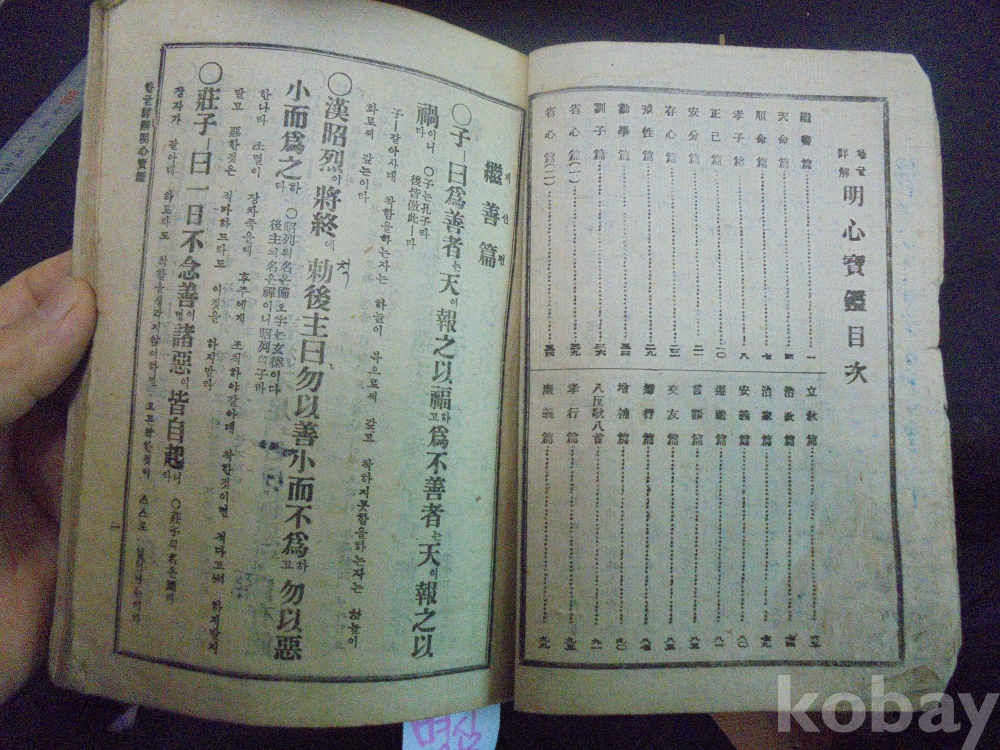 한글
詳解 明心寶鑑目次
繼善篇 一
天命篇 四
順命篇 七
孝子篇 八
正己篇 一〇
安分篇 二一
存心篇
戒性篇 二九
勤學篇
訓子篇 三六
省心篇(一) 三九
省心篇(二)
立敎篇
治政篇
治家篇
安義篇
遵禮篇
言語篇
交友篇
婦行篇
增補篇
八反歌八首
孝行篇
廉義篇
계선편
繼善篇
○子ㅣ曰爲善者는天이報之以福하고爲不善者는天이報之以
禍이니라 ○子는孔子라 後皆倣此ㅣ라
子ㅣ갈아사대 착함을하는자는 하늘이 복으로써 갚고 착하지못함을하는자는 하늘이
화로써 갚는이라
○漢昭烈이將終에勅後主曰勿以善小而不爲하고勿以惡
칙
小而爲之하라 ○昭列의名은備오字는玄德이다 後主의名은禪이니昭烈의子라
한나라 소렬이 장차죽을때 후주에게 조칙하야갈아대 착한것이면 적다고써 하지말지
말고 惡한것은 적다하드라도 이것을 하지말라
○莊子ㅣ曰一日不念善이면諸惡이皆自起니라 ○莊子의名은周라
장자가 갈아대 하로라도 착함을생각지않이하면 모든악한것이 스스로 일어나는이라
한글詳解明心寶鑑
一
명심
kobay